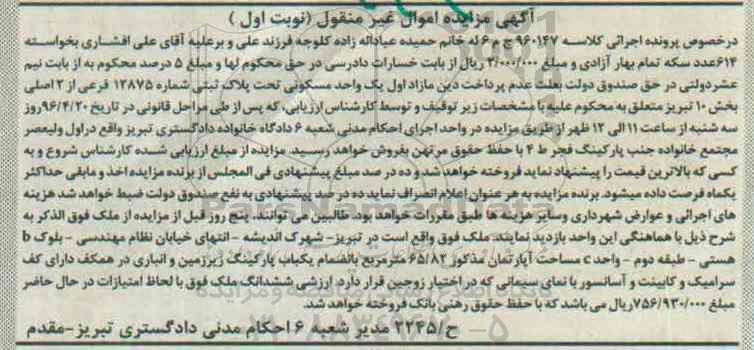 آگهی مزایده اموال غیر منقول (نوبت اول)
درخصوص پرونده اجرائی کلاسه ۹۶۰۱۴۷ ج م ۶ له خانم حمیده عباداله زاده کلوجه فرزند علی و برعلیه آقای علی افشاری بخواسته
۶۱۴عدد سکه تمام بهار آزادی و مبلغ ۳/۰۰۰/۰۰۰ ریال از بابت خسارات دادرسی در حق محکوم لها و مبلغ ۵ درصد محکوم به از بابت نیم
عشردولتی در حق صندوق دولت بعلت عدم پرداخت دین مازاد اول یک واحد مسکونی تحت پلاک ثبتی شماره ۱۲۸۷۵ فرعی از ۲ اصلی
بخش ۱۰ تبریز متعلق به محکوم علیه با مشخصات زیر توقیف و توسط کارشناس ارزیابی، که پس از طی مراحل قانونی در تاریخ ۹۶/۴/۲۰روز
سه شنبه از ساعت ۱۱ الی ۱۲ ظهر از طریق مزایده در واحد اجرای احکام مدنی شعبه ۶ دادگاه خانواده دادگستری تبریز واقع دراول ولیعصر
مجتمع خانواده جنب پارکینگ فجر ط ۴ با حفظ حقوق مرتهن بفروش خواهد رسید. مزایده از مبلغ ارزیابی شده کارشناس شروع و به
کسی که بالاترین قیمت را پیشنهاد نماید فروخته خواهد شد و ده در صد مبلغ پیشنهادی فی المجلس از برنده مزایده اخذ و مابقی حداکثر
یکماه فرصت داده میشود. برنده مزایده به هر عنوان اعلام انصراف نماید ده در صد پیشنهادی به نفع صندوق دولت ضبط خواهد شد هزینه
های اجرائی و عوارض شهرداری وسایر هزینه ها طبق مقررات خواهد بود. طالبین می توانند، پنج روز قبل از مزایده از ملک فوق الذکر به
شرح ذیل با هماهنگی این واحد بازدید نمایند. ملک فوق واقع است در تبریز- شهرک اندیشه - انتهای خیابان نظام مهندسی - بلوک b
هستی - طبقه دوم - واحد c مساحت آپارتمان مذکور ۶۵/۸۲ مترمربع بانضمام یکباب پارکینگ زیرزمین و انباری در همکف دارای کف
سرامیک و کابینت و آسانسور با نمای سیمانی که در اختیار زوجین قرار دارد. ارزشی ششدانگ ملک فوق با لحاظ امتیازات در حال حاضر
مبلغ ۷۵۶/۹۳۰/۰۰۰ریال می باشد که با حفظ حقوق رهنی بانک فروخته خواهد شد.
ح/۲۲۴۵ مدیر شعبه ۶ احکام مدنی دادگستری تبریز-مقدم